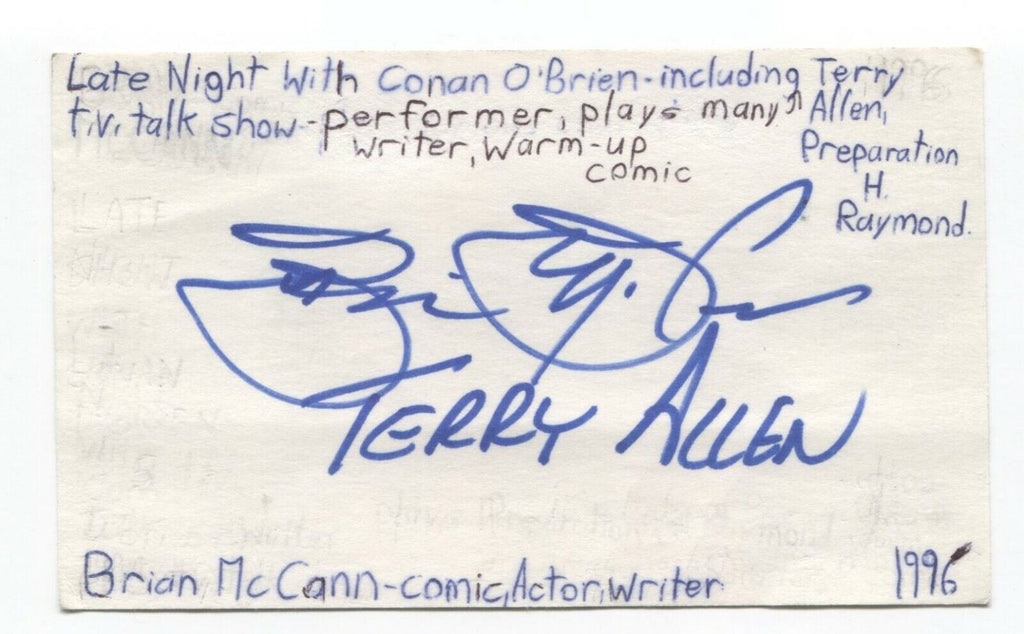 Late Night With Conan O'Brien-including Terry
T.V. talk show-performer, plays many Allen,
writer, Warm-up Preparation
comic H.
Raymond.
TERRY ALLEN
Brian McCann-comic, Actor, writer 1996